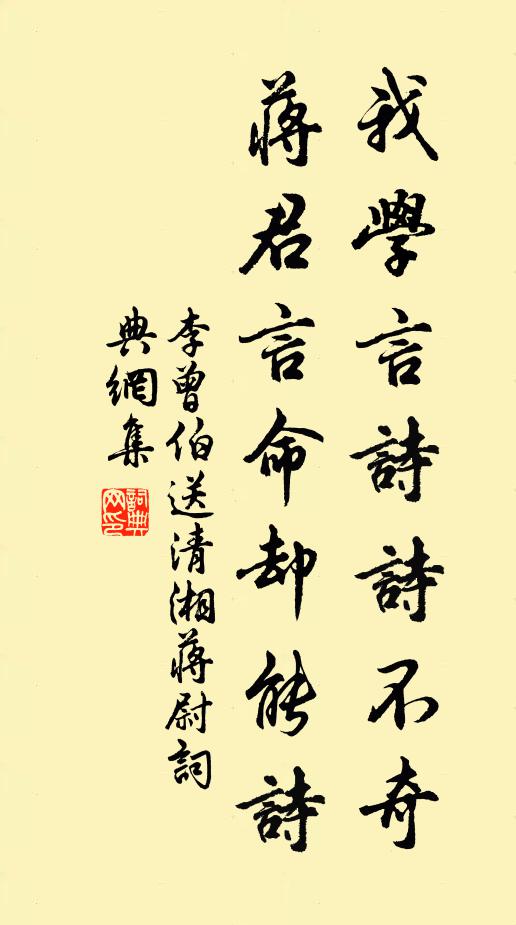 我學言詩詩不奇
蔣君言命却能詩
李曾伯送清湘蔣尉詞
典網集
詞典網印